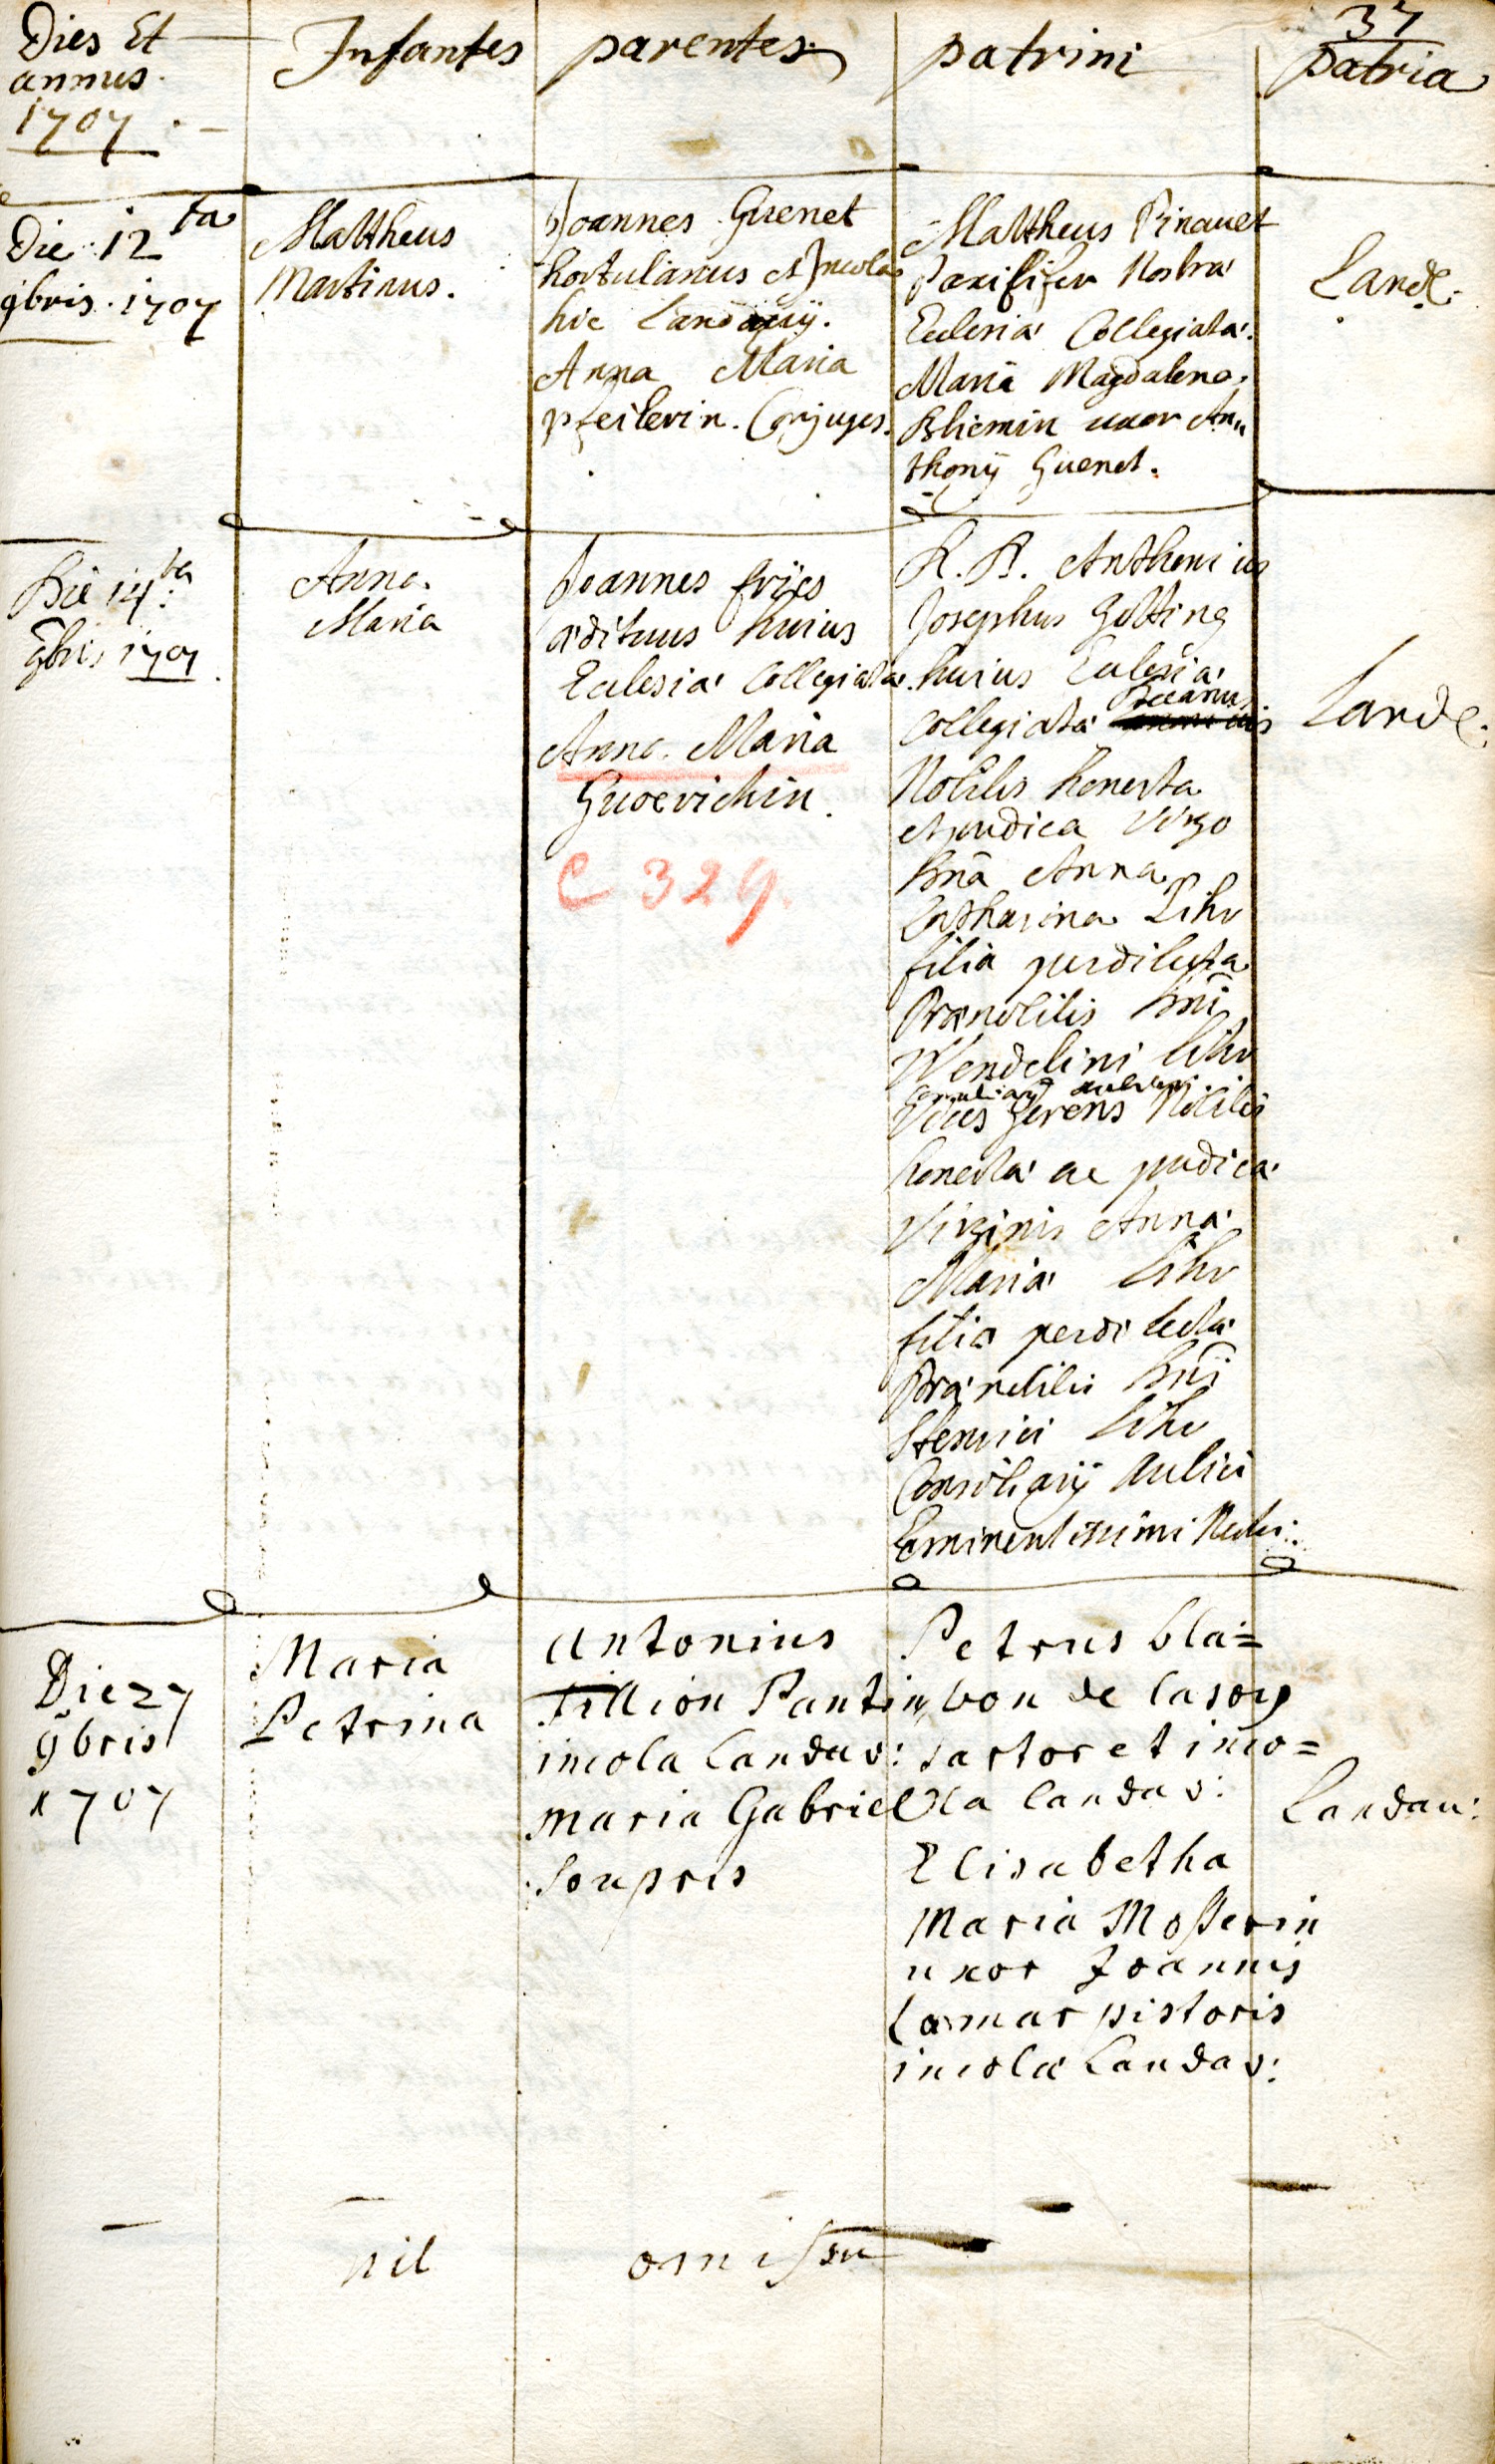 37
Dies Et
annus.
1707
Infantes
parentes
patrini
patria
Die 12 ta
9bris. 1707
Mattheus
Martinus.
Joannes Guenet
hortulanus et Incola
hic
Anna Maria
pfeilerin. Conjuges.
Mattheus Pinauet
Panififex Nostra
Eclesia Collegiata.
Maria Magdalena
Bliemin uxor An„
thonÿ Guenet.
Land.
Die 14 ta
9bris 1707
Anna.
Maria
Joannes fries
ædituus huius
Eclesia Collegiata.
Anna. Maria
Guoerichin.
C 329.
R. D. Anthonius
Josephus Gotting
huius Eclesia
Collegiata Decanus
Nobilis honesta
et pudica Virgo
Dnã Anna
Catharina Lihr
filia perdilecta
Prænobilis Dni
Wendelini Lihr
Vices gerens Nobilis
honesta ac pudica
Virginis Anna
Maria Lihr
filia perdilecta
Prænobilis Dni
Henrici Lihr
Consiliarÿ Aulici
Eminentissimi
Land.
Die 27
9bris
1707
Maria
Petrina
Antonius
Fillion Pantin
incola Landav:
Maria Gabriel
Soupris
Petrus bla=
bon de lasoy
sartor et inco=
la landav:
Elisabetha
Maria Mosserin
uxor Joannis
Lamar pistoris
incolæ Landav:
Landau:
nil
omissu